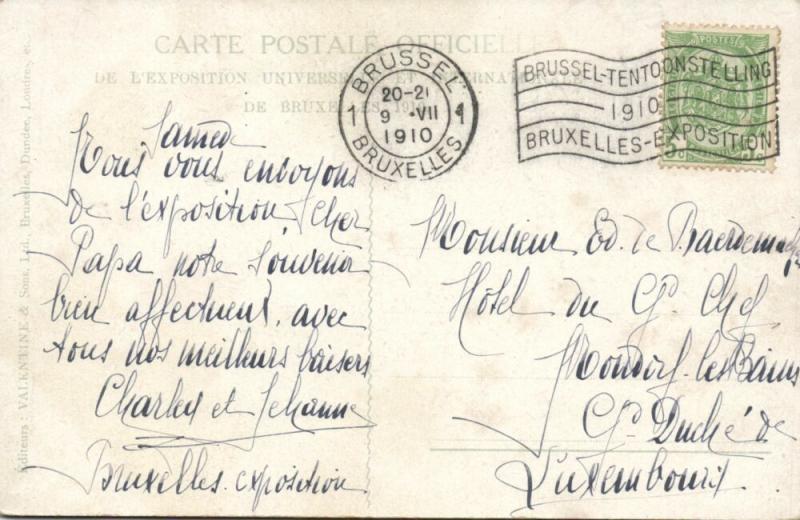 CARTE POSTALE OFFICIELLE
DE L'EXPOSITION UNIVERSELLE ET INTERNATIONALE
DE BRUXELLES 1910
BRUSSEL
20-21
1 9 ·VII 1
1910
BRUXELLES
BRUSSEL-TENTOONSTELLING
1910
BRUXELLES-EXPOSITION
POSTES
Samedi
Nous vous envoyons
de l'exposition, cher
Papa notre souvenir
bien affectueux, avec
tous nos meilleurs baisers
Charles et Jehanne
Bruxelles-exposition
Monsieur Ed. de
Hôtel du Gd Chef
Mondorf les Bains
Gd Duché de
Luxembourg.
Éditeurs: VALENTINE & Sons, Ltd. Bruxelles, Dundee, Londres, etc.